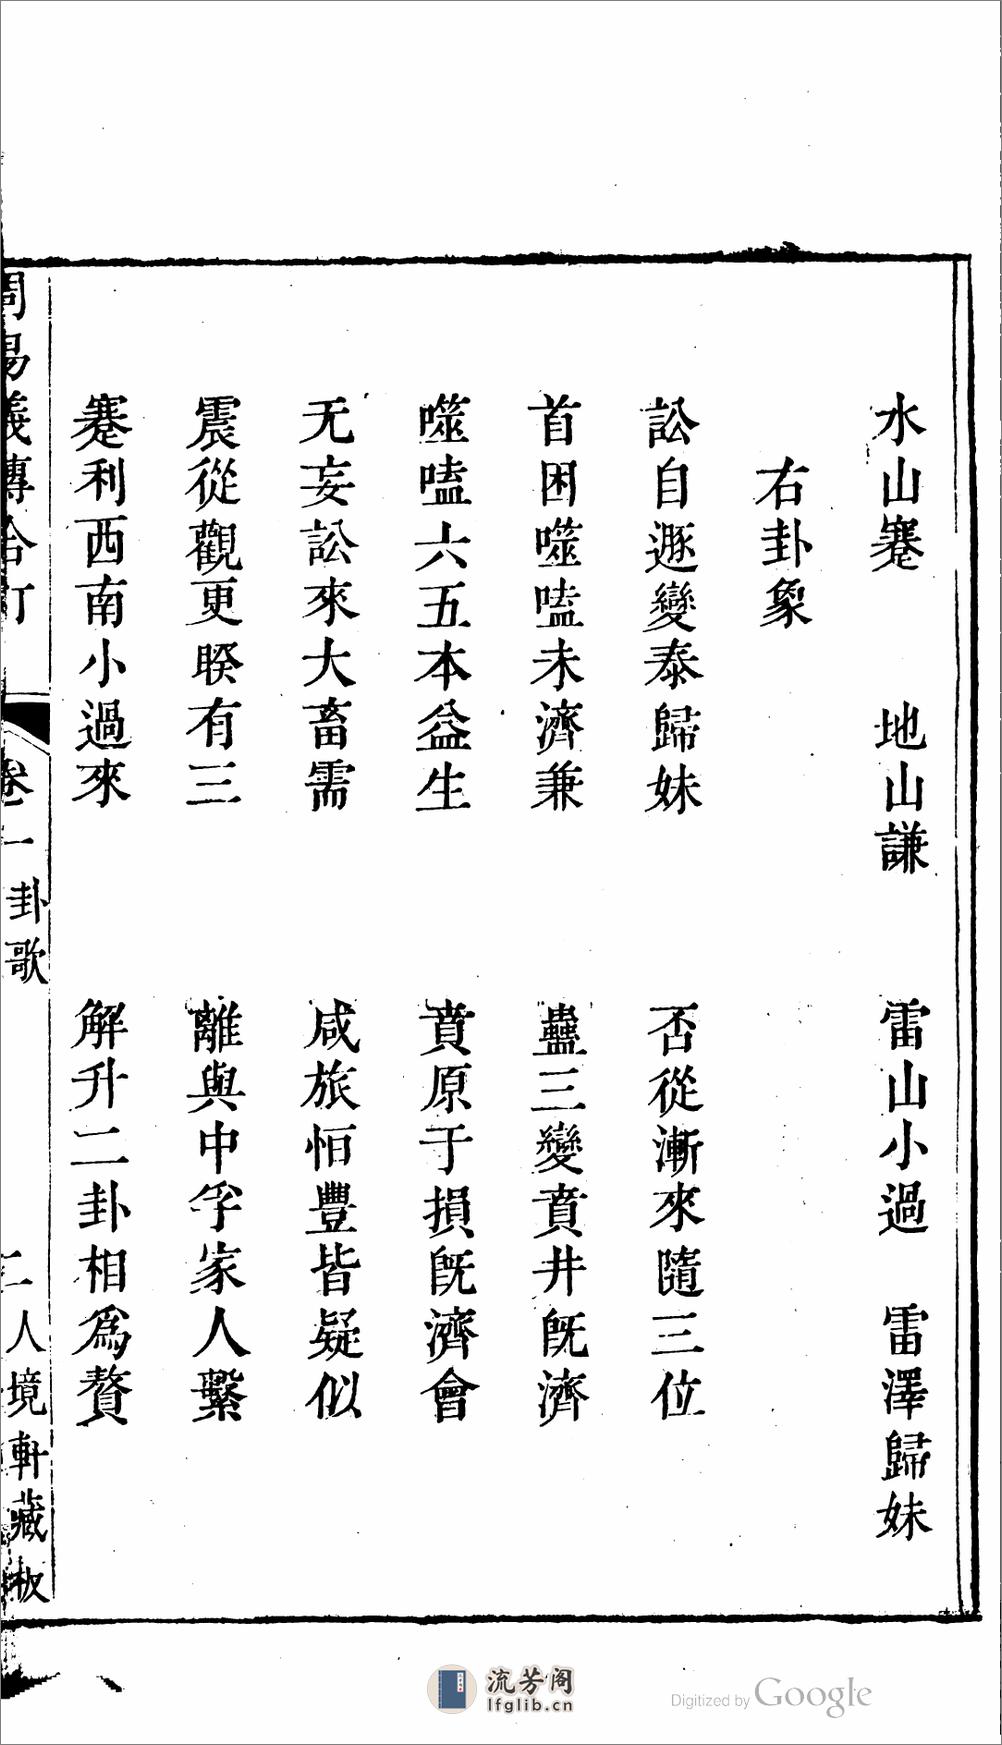 水山蹇　地山謙　雷山小過　雷澤歸妹
右卦象
訟自遯變泰歸妹　否從漸來隨三位
首困噬嗑未濟兼　蠱三變賁井旣濟
噬嗑六五本益生　賁原于損旣濟會
无妄訟來大畜需　咸旅恒豐皆疑似
晉從觀更睽有三　離與中孚家人繫
蹇利西南小過來　解升二卦相爲贅
周易義傳合訂　卷一　卦歌　二　人境軒藏板
流芳阁
lfglib.cn
Digitized by Google